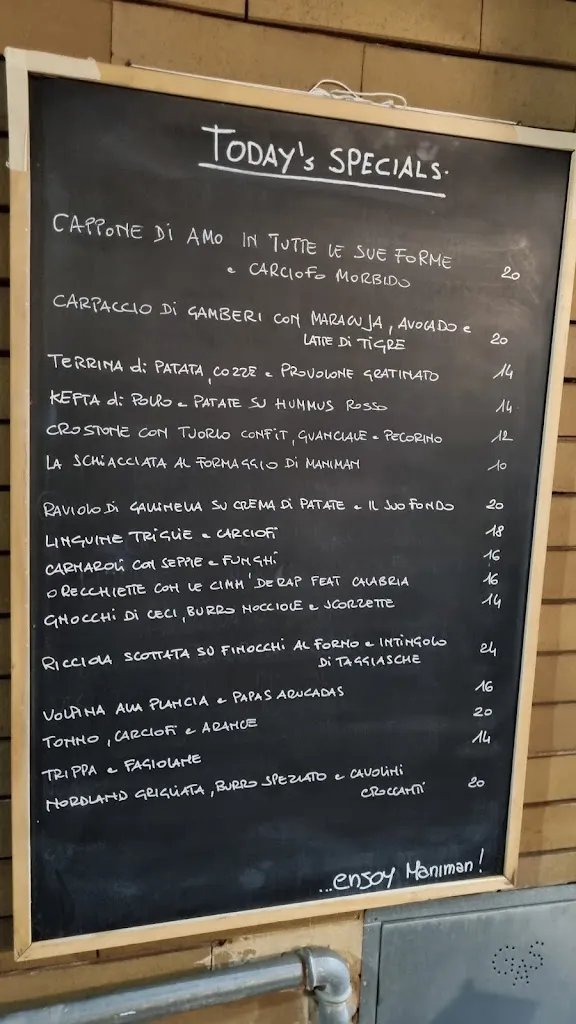 TODAY'S SPECIALS.
CAPPONE DI AMO IN TUTTE LE SUE FORME
e CARCIOFO MORBIDO 20
CARPACCIO DI GAMBERI CON MARACUJA, AVOCADO e
LATTE DI TIGRE 20
TERRINA di PATATA, COZZE e PROVOLONE GRATINATO 14
KEFTA di POLPO e PATATE SU HUMMUS ROSSO 14
CROSTONE CON TUORLO CONFIT, GUANCIALE e PECORINO 12
LA SCHIACCIATA AL FORMAGGIO DI MANIMAN 10
RAVIOLO DI GALLINELLA SU CREMA DI PATATE e IL SUO FONDO 20
LINGUINE TRIGLIE e CARCIOFI 18
CARNAROLI CON SEPPIE e FUNGHI 16
ORECCHIETTE CON LE CIMM' DE RAP FEAT CALABRIA 16
GNOCCHI DI CECI, BURRO NOCCIOLE e SCORZETTE 14
RICCIOLA SCOTTATA SU FINOCCHI AL FORNO e INTINGOLO
DI TAGGIASCHE 24
VOLPINA ALLA PLANCIA e PAPAS ARUGADAS 16
TONNO, CARCIOFI e ARANCE 20
TRIPPA e FAGIOLANE 14
NORDLAND GRIGLIATA, BURRO SPEZIATO e CAVOLINI
CROCCANTI 20
...enjoy Maniman!
GAS